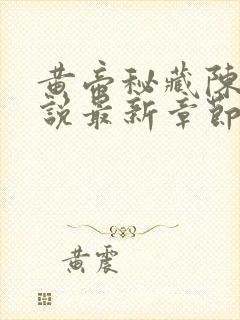 黄帝秘藏陈
說最新章節
黄震